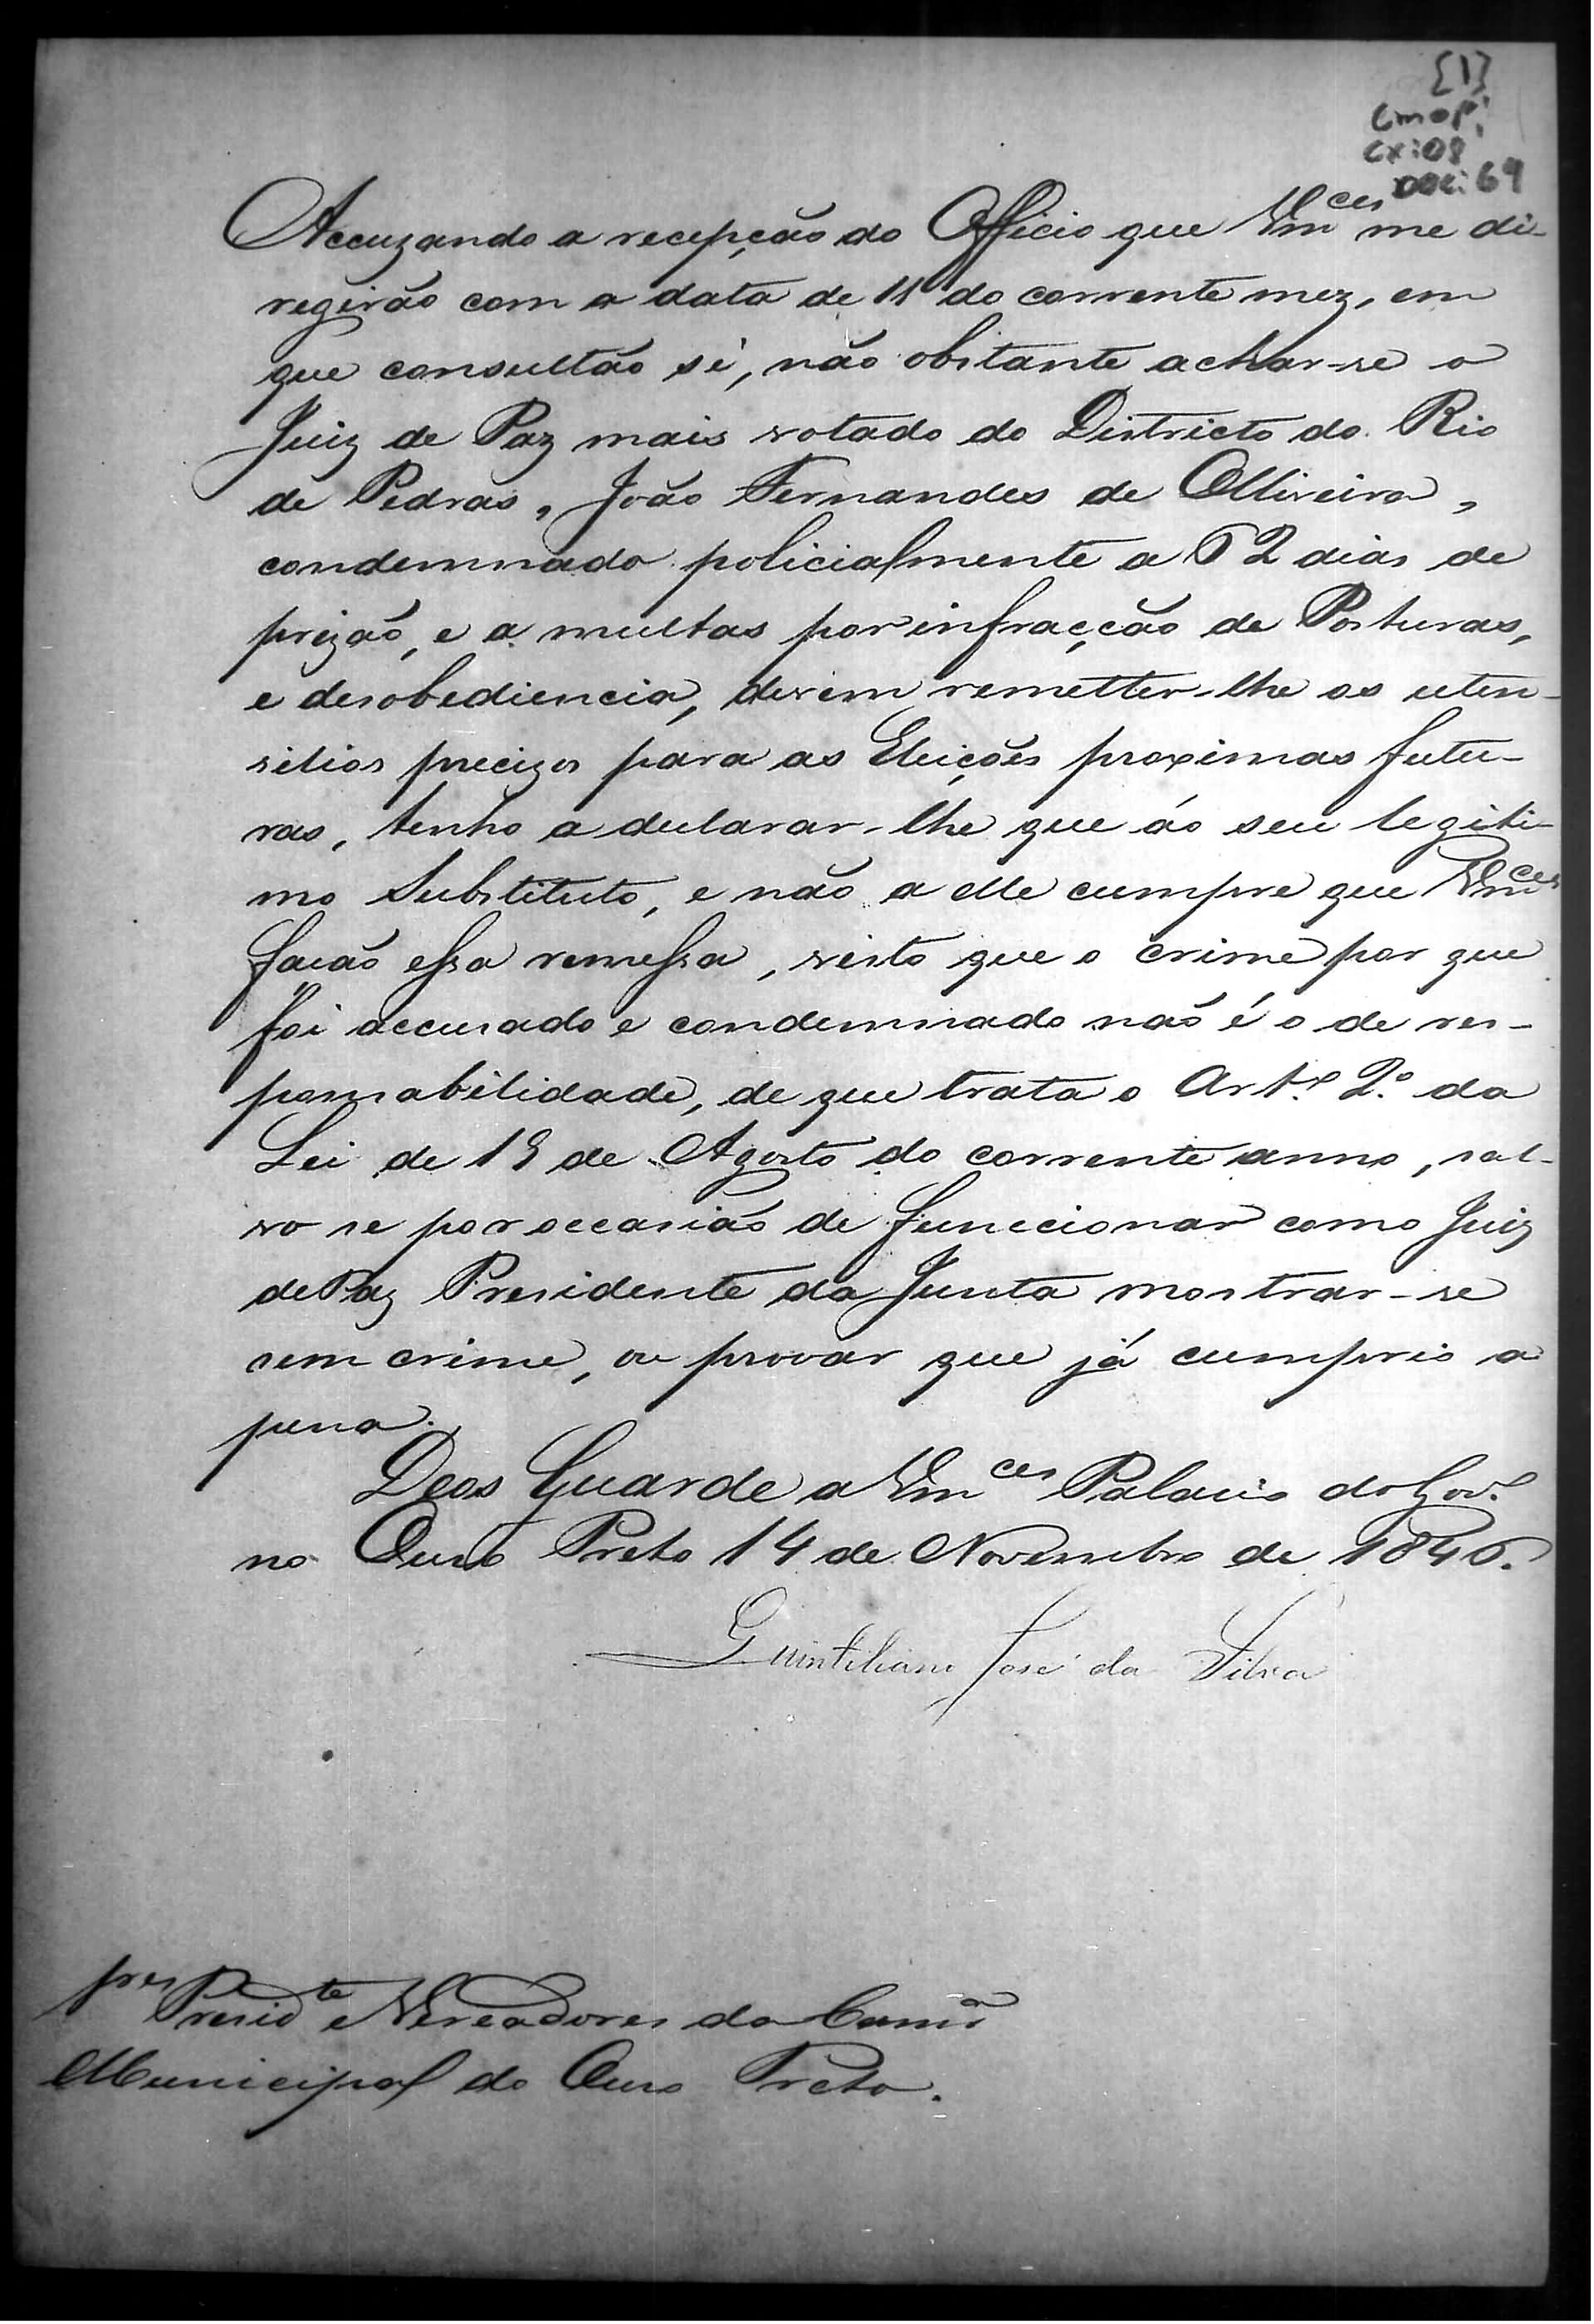 [1]
CMOP!
CX:08
DOC:69
Accuzando a recepção do Officio que Vm.ces me di-
regirão com a data de 11 do corrente mez, em
que consultão sé, não obstante achar-se o
Juiz de Paz mais votado do Districto do Rio
de Pedras, João Fernandes de Olliveira,
condemnado policialmente a 62 dias de
prizão, e a multas por infracção de Posturas,
e desobediencia, devem remetter-lhe os uten-
silios precizos para as Eleições proximas futu-
ras, tenho a declarar-lhe que áo seu legiti-
mo Substituto, e não a elle cumpre que Vm.ces
facão essa remessa, visto que o crime por que
foi accusado e condemnado não é o de res-
ponsabilidade, de que trata o Art.º 2.º da
Lei de 19 de Agosto do corrente anno, sal-
vo se por occasião de funccionar como Juiz
de Paz Presidente da Junta mostrar-se
sem crime, ou provar que já cumprio a
pena.
Deos Guarde a Vm.ces Palacio do Gov.
no Ouro Preto 14 de Novembro de 1846.
Quintiliano José da Silva
Presid.te e Vereadores da Camr.a
Municipal do Ouro Preto.